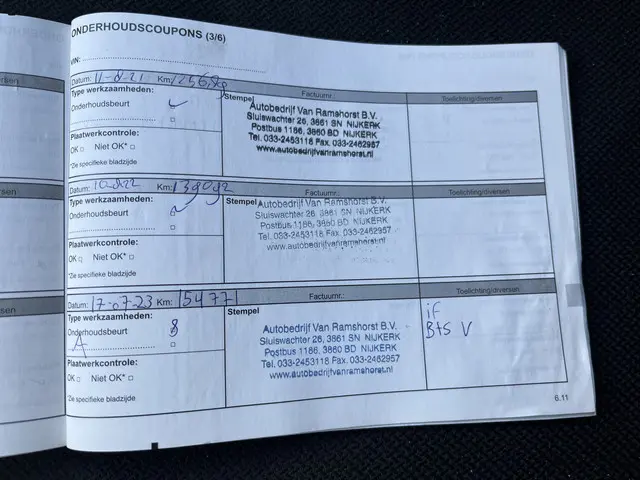 ONDERHOUDSCOUPONS (3/6)
VIN:
Datum: 11-8-21 Km:
Type werkzaamheden:
Onderhoudsbeurt
Plaatwerkcontrole:
OK □ Niet OK* □
*Zie specifieke bladzijde
Factuurnr.:
Stempel
Autobedrijf Van Ramshorst B.V.
Sluiswachter 26, 3861 SN NIJKERK
Postbus 1186, 3860 BD NIJKERK
Tel. 033-2453118 Fax. 033-2462957
www.autobedrijfvanramshorst.nl
Toelichting/diversen
Datum: Km: 139092
Type werkzaamheden:
Onderhoudsbeurt
Plaatwerkcontrole:
OK □ Niet OK* □
*Zie specifieke bladzijde
Factuurnr.:
Stempel
Autobedrijf Van Ramshorst B.V.
Sluiswachter 26, 3861 SN NIJKERK
Postbus 1186, 3860 BD NIJKERK
Tel. 033-2453118 Fax. 033-2462957
www.autobedrijfvanramshorst.nl
Toelichting/diversen
Datum: 17-07-23 Km: 154771
Type werkzaamheden:
Onderhoudsbeurt
A
Plaatwerkcontrole:
OK □ Niet OK* □
*Zie specifieke bladzijde
Factuurnr.:
Stempel
Autobedrijf Van Ramshorst B.V.
Sluiswachter 26, 3861 SN NIJKERK
Postbus 1186, 3860 BD NIJKERK
Tel. 033-2453118 Fax. 033-2462957
www.autobedrijfvanramshorst.nl
Toelichting/diversen
if
V
6.11